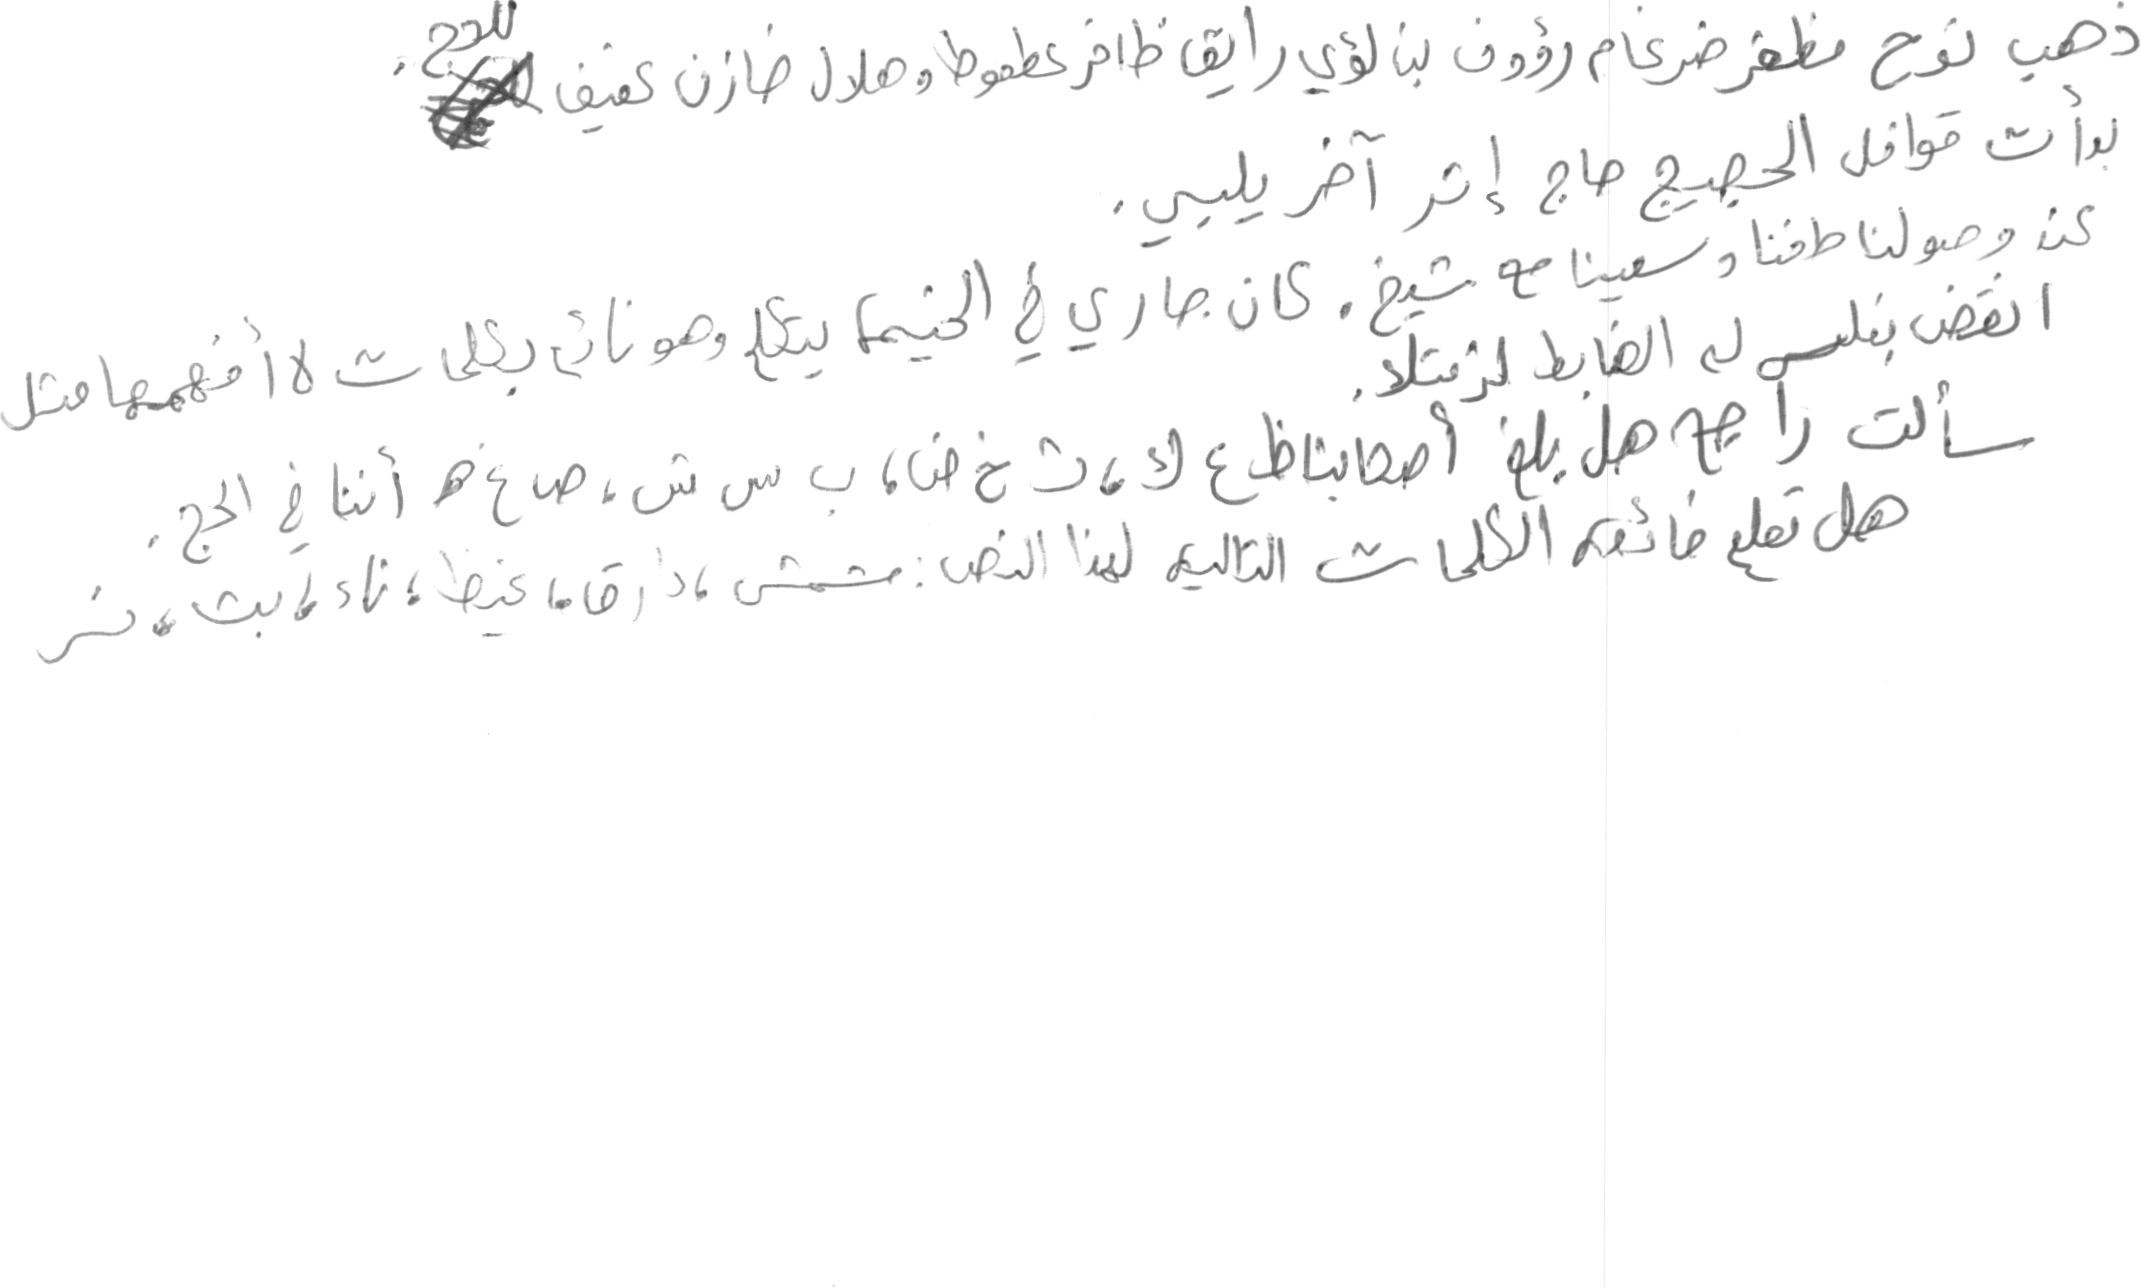 ذهب نوح مظفر ضرغام رؤوف بن لؤي رايق ظافر عطعوط وهلال خازن عفيف للحج.
بدأت قوافل الحجيج حاج إثر آخر يلبي.
عند وصولنا طفنا وسعينا مع شيخ. كان جاري في الخيمة يتكلم وهو نائم بكلمات لا أفهمها مثل
انقض بغلس له الضابط لزمتلأ.
سألت راجح هل بلغ أصحابنا ظ ع ك، ث خ ض، ب س ش، ص غ ه أننا في الحج.
هل تصلح قائمة الكلمات التالية لهذا النص: مشمش، دارقا، غيظ، ناء، بث، نسر